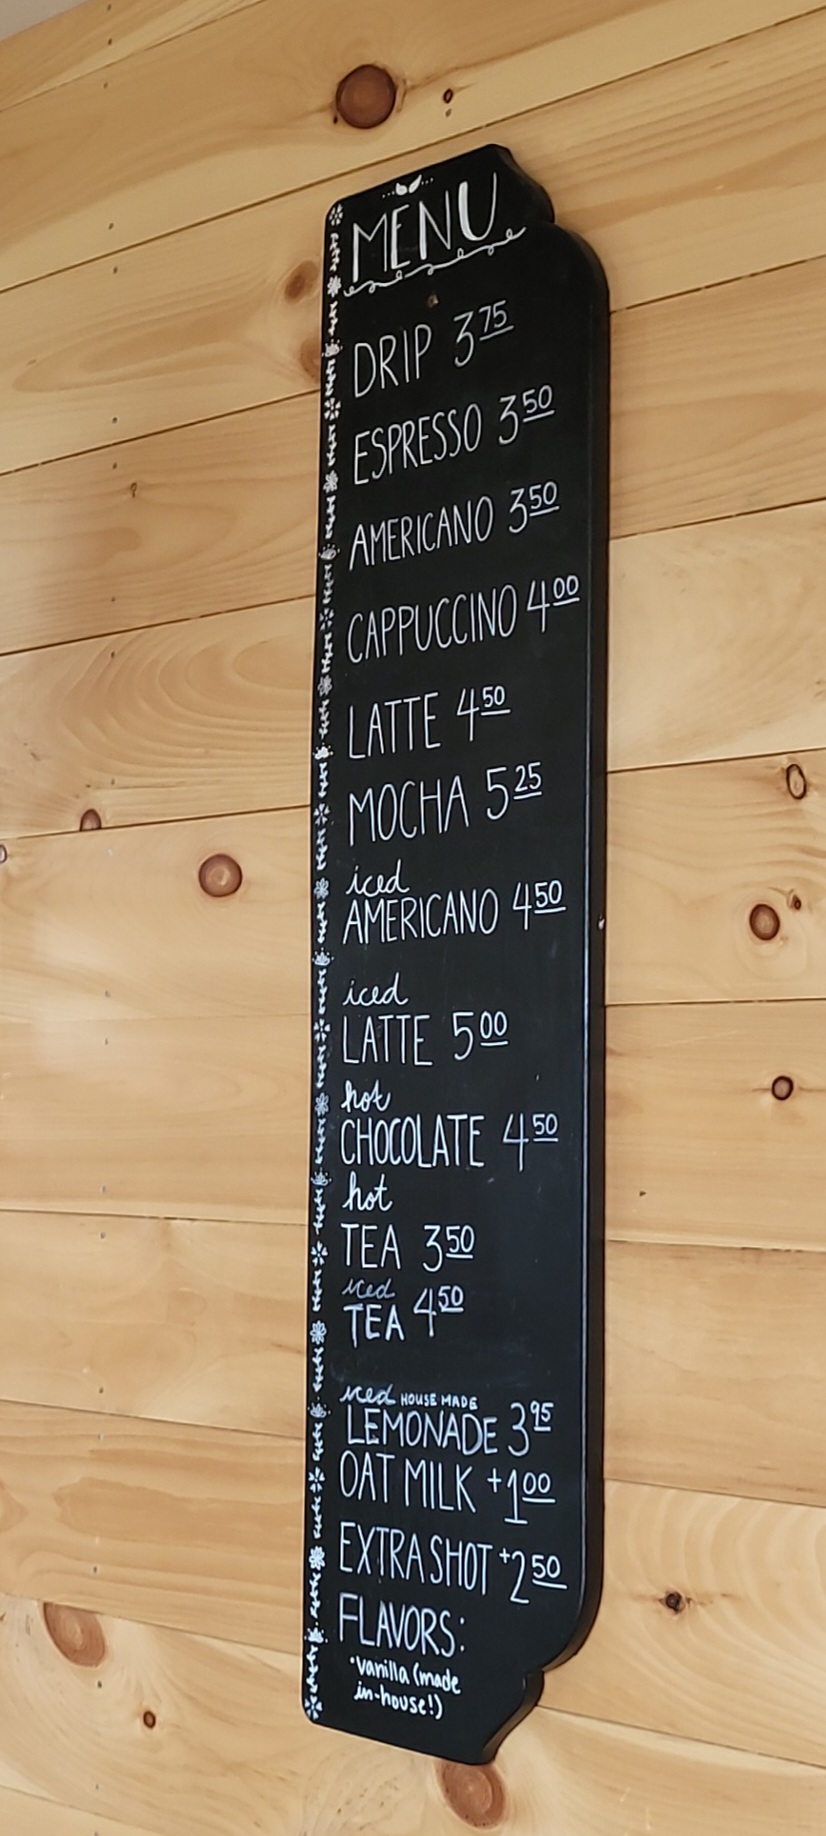 MENU
DRIP 3 75
ESPRESSO 3 50
AMERICANO 3 50
CAPPUCCINO 4 00
LATTE 4 50
MOCHA 5 25
iced
AMERICANO 4 50
iced
LATTE 5 00
hot
CHOCOLATE 4 50
hot
TEA 3 50
iced
TEA 4 50
iced HOUSE MADE
LEMONADE 3 95
OAT MILK +1 00
EXTRA SHOT +2 50
FLAVORS:
•vanilla (made
in-house!)